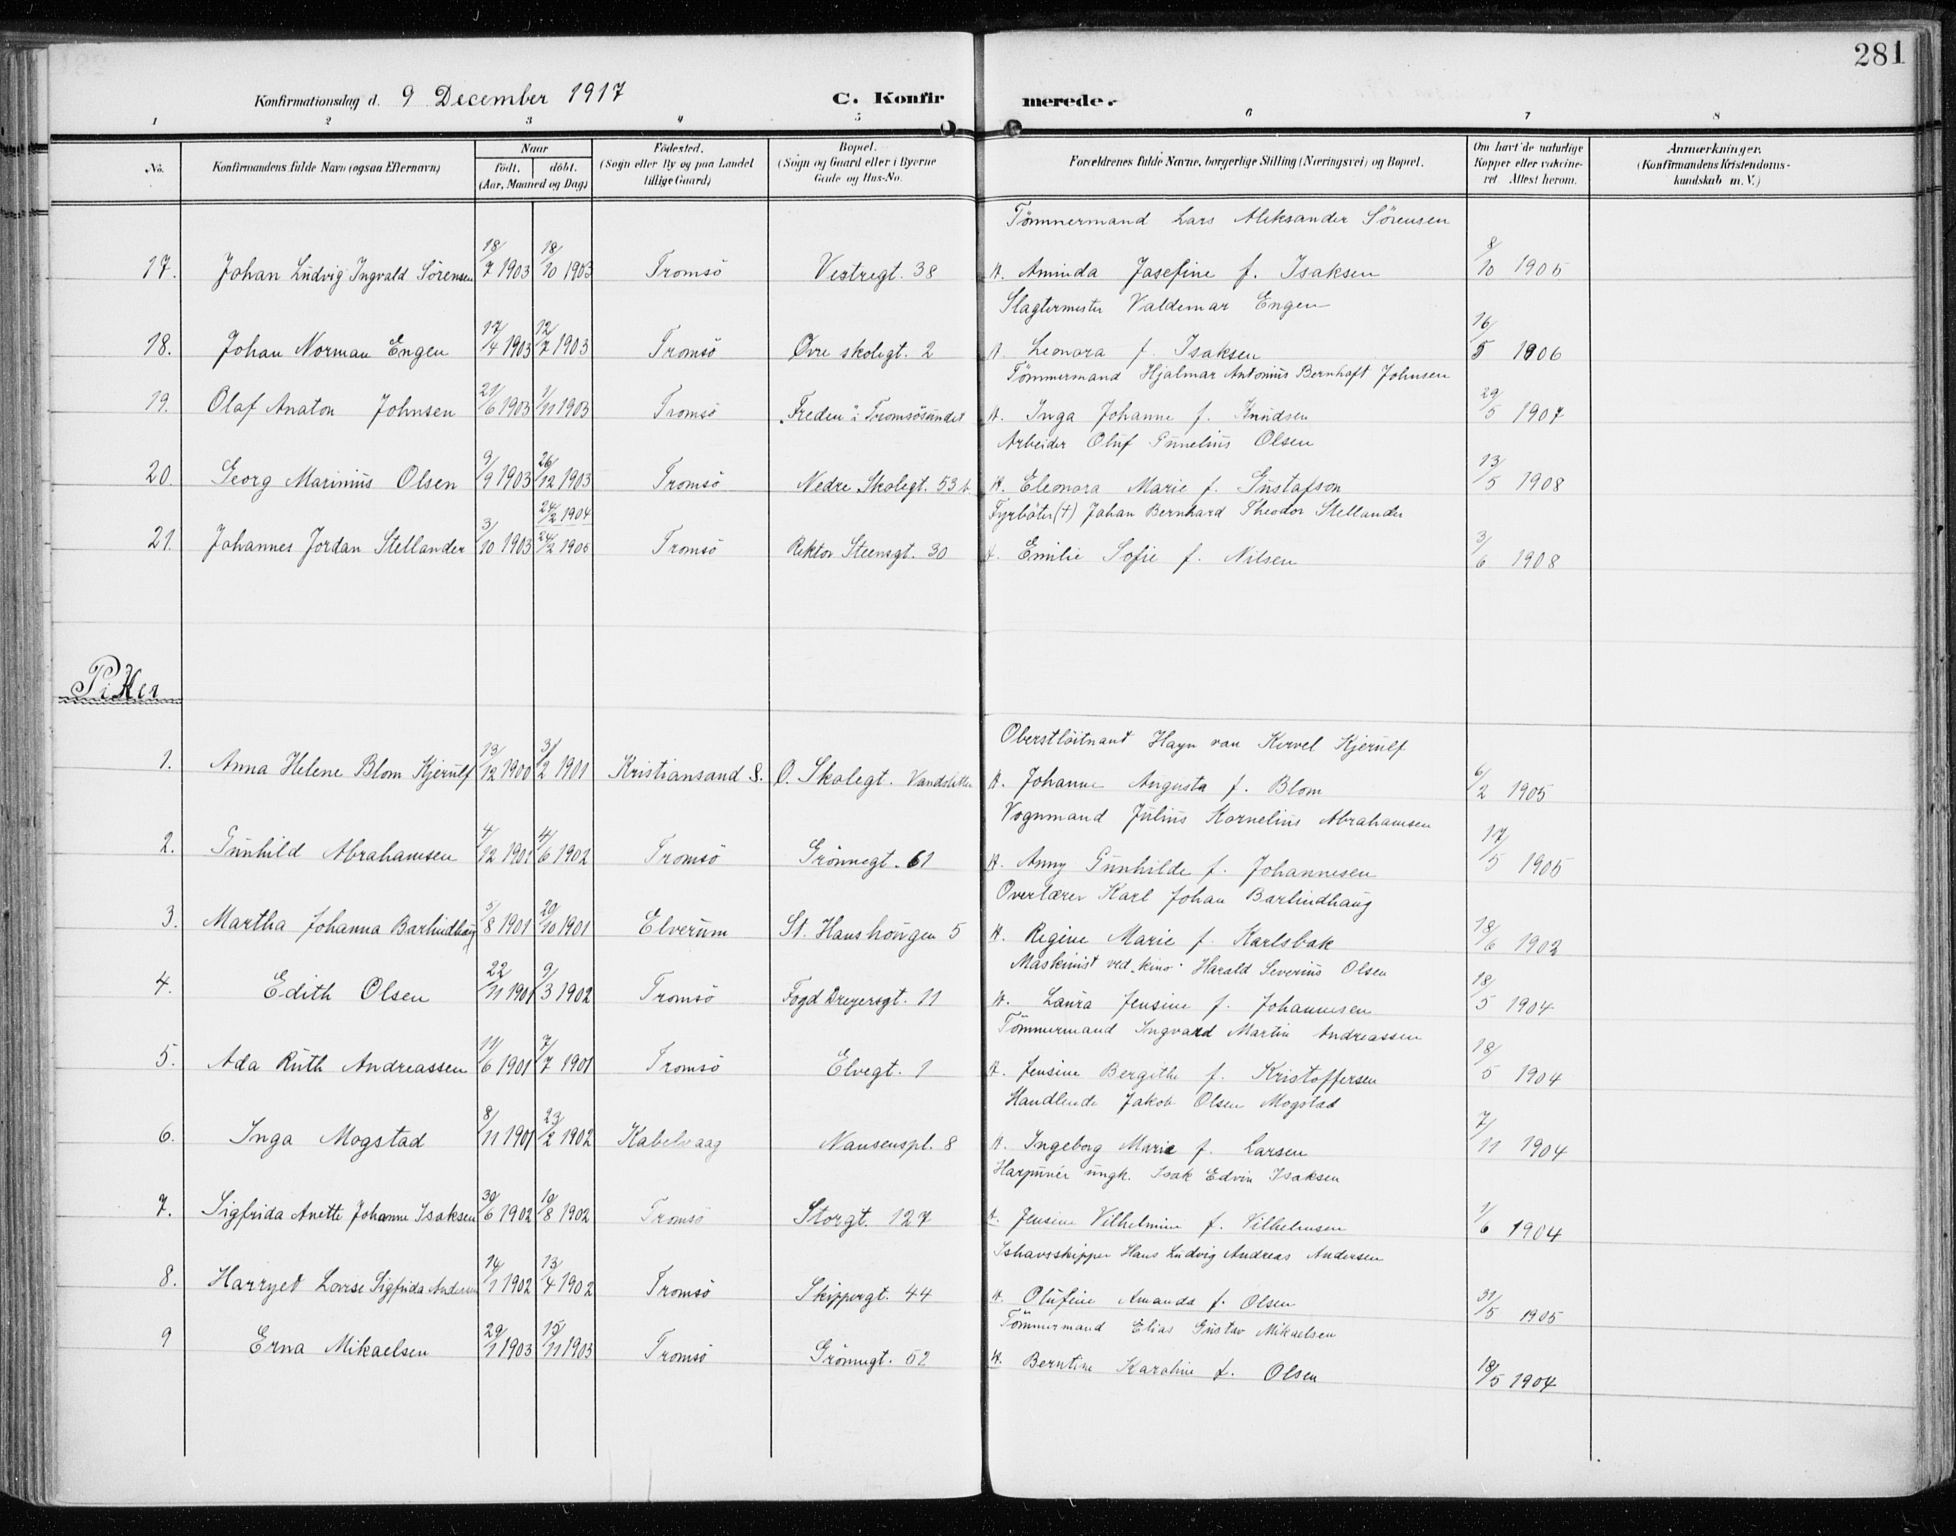 281
Konfirmationsdag d. 9 December 1917 C. Konfirmerede.
1 2 3 4 5 6 7 8
No. Konfirmandens fulde Navn (ogsaa Efternavn) Naar født. døbt. (Aar, Maaned og Dag) Fødested. (Sogn eller By og paa Landet tillige Gaard) Bopæl. (Sogn og Gaard eller i Byerne Gade og Hus-No. Forældrenes fulde Navne, borgerlige Stilling (Næringsvei) og Bopæl. Om havt de naturlige Kopper eller vakcineret Attest herom. Anmærkninger. (Konfirmandens Kristendomskundskab m. V.)
Tömmermand Lars Aleksander Sörensen
17. Johan Ludvig Ingvald Sörensen 18/7 1903 18/10 1903 Tromsö Vestregt. 38 H. Aminda Josefine f. Isaksen 8/10 1905
Slagtermester Valdemar Engen
18. Johan Norman Engen 17/4 1903 12/7 1903 Tromsö Øvre skolegt. 2 H. Leonora f. Isaksen 16/5 1906
Tömmermand Hjalmar Antonius Bernhoft Johnsen
19. Olaf Anaton Johnsen 21/6 1903 1/11 1903 Tromsö "Freden" i Tromsösundet H. Inga Johanne f. Knudsen 29/5 1907
Arbeider Oluf Gunelius Olsen
20. Georg Marinius Olsen 9/9 1903 26/12 1903 Tromsö Nedre Skolegt. 53 b. H. Eleonora Marie f. Gustafson 13/5 1908
24/2 1904 Fyrböter (+) Johan Bernhard Theodor Stellander
21. Johannes Jordan Stellander 3/10 1903 24/2 1905 Tromsö Rektor Steensgt. 30 H. Emilie Sofie f. Nilsen 3/6 1908
Piker
Oberstlöitnant Hayn van Kervel Kjerulf
1. Anna Helene Blom Kjerulf 13/12 1900 3/2 1901 Kristiansand S. O. Skolegt. H. Johanne Augusta f. Blom 6/2 1905
Vognmand Julius Kornelius Abrahamsen
2. Gunhild Abrahamsen 4/12 1901 4/6 1902 Tromsö Grönnegt. 61 H. Anny Gunhilde f. Johannesen 17/5 1905
Overlærer Karl Johan Barlindhaug
3. Martha Johanna Barlindhaug 5/8 1901 20/10 1901 Elverum St. Hanshaugen 5 H. Regine Marie f. Karlsbak 18/6 1902
Maskinist ved "kino" Harald Severius Olsen
4. Edith Olsen 22/11 1901 9/3 1902 Tromsö Fogd Dreyersgt. 11 H. Laura Jensine f. Johannesen 18/5 1904
Tömmermand Ingvard Martin Andreassen
5. Ada Ruth Andreassen 11/6 1901 7/7 1901 Tromsö Elvegt. 1 H. Jensine Bergithe f. Kristoffersen 18/5 1904
Handlende Jakob Olsen Mogstad
6. Inga Mogstad 8/11 1901 23/2 1902 Kabelvaag Nansenspl. 8 H. Ingeborg Marie f. Larsen 7/11 1904
Harpunér ungk. Isak Edvin Isaksen
7. Sigfrida Anette Johanne Isaksen 30/6 1902 10/8 1902 Tromsö Storgt. 127 H. Jensine Vilhelmine f. Vilhelmsen 1/6 1904
Ishavsskipper Hans Ludvig Andreas Andersen
8. Harryet Lovise Sigfrida Andersen 14/1 1902 13/4 1902 Tromsö Skippergt. 44 H. Olufine Amanda f. Olsen 31/5 1905
Tömmermand Elias Gustav Mikaelsen
9 Erna Mikaelsen 29/1 1903 15/11 1903 Tromsö Grönnegt. 52 H. Berntine Karoline f. Olsen 18/5 1904